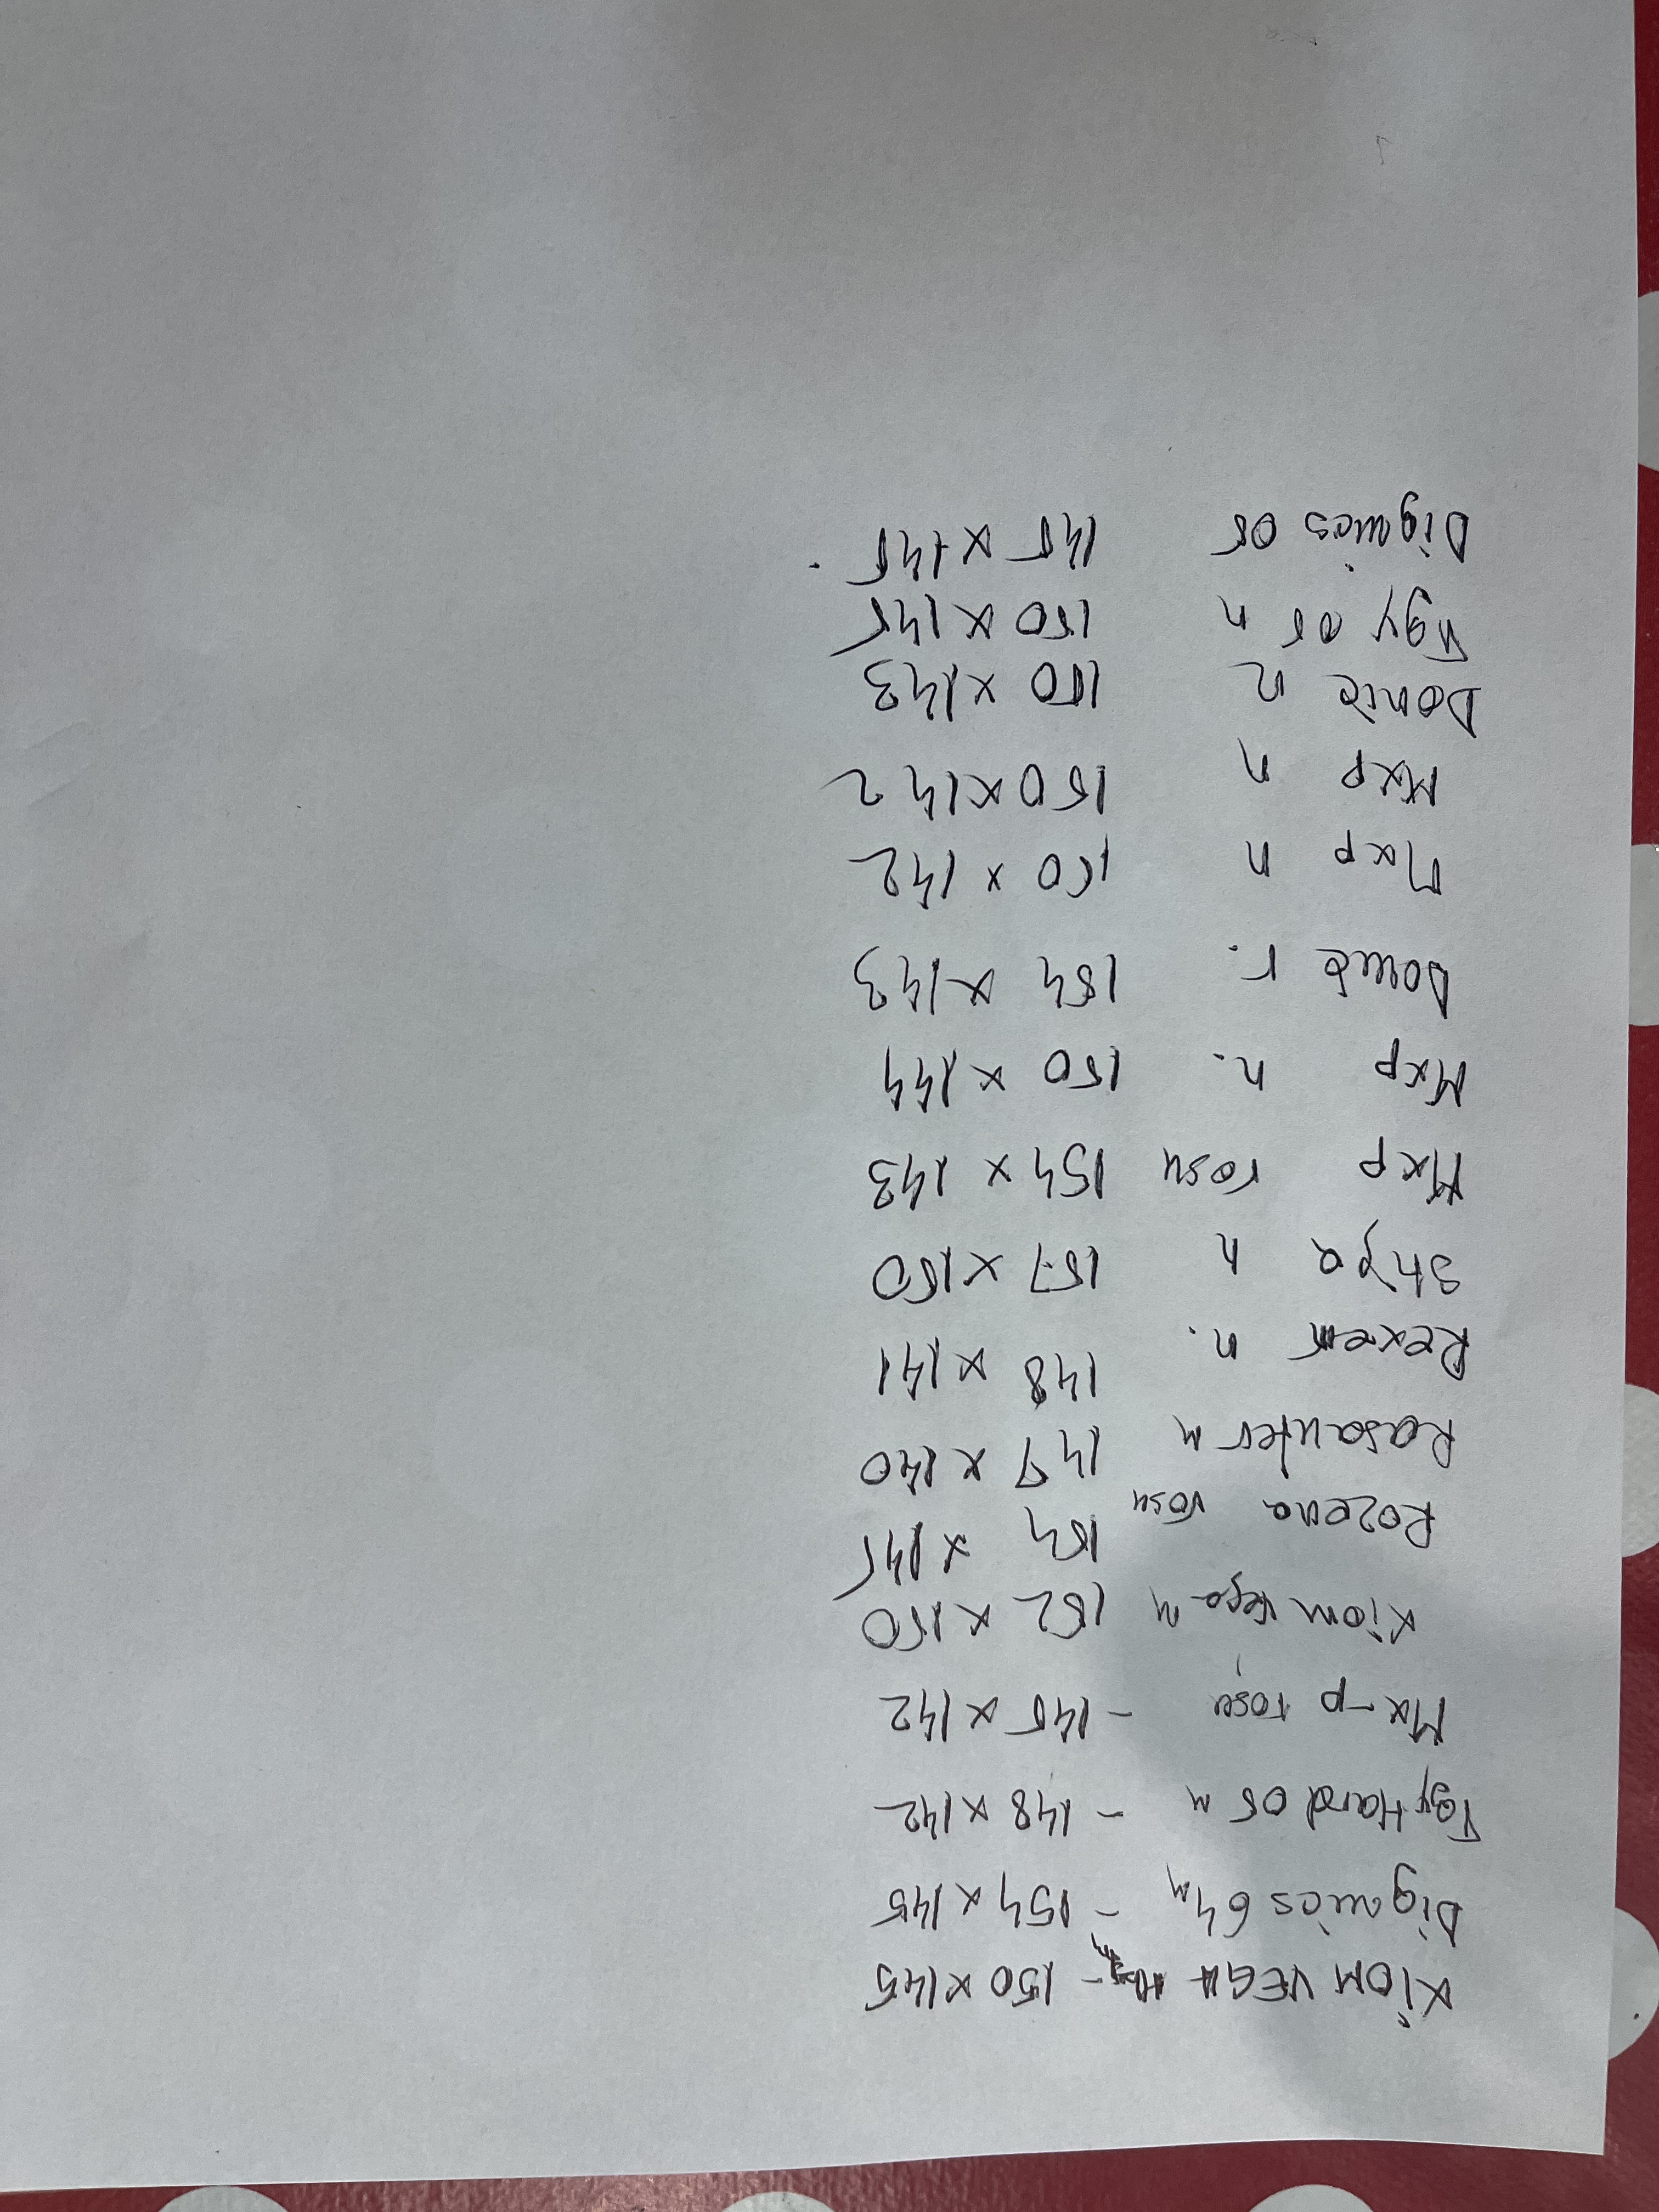 Xiom VEGA n - 150 x 145
Dignics 64 n - 154 x 145
Tgy Hard 05 n - 148 x 142
Mx-p rosu - 145 x 142
Xiom Vega n 152 x 150
Rozena rosu 154 x 145
Rasanter n 149 x 140
n. 148 x 141
n 157 x 150
Mxp rosu 154 x 143
Mxp n. 150 x 144
Donic r. 154 x 143
Mxp n 150 x 142
Mxp n 150 x 142
Donic n 150 x 143
Tgy 05 n 150 x 145
Dignics 05 145 x 145.